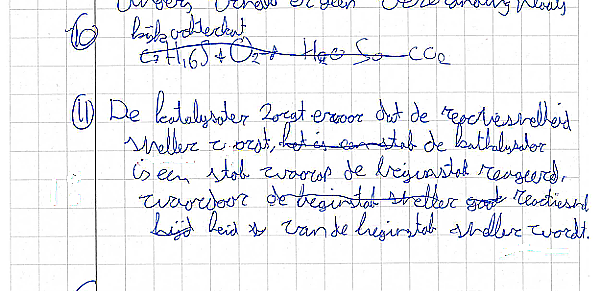 10 kijk achterkant
C7H16S + O2 → H2O SO CO2
11 De katalysator zorgt ervoor dat de reactiesnelheid
sneller wordt, het is een stof de kathalysator
is een stof waarop de beginstof reageerd,
waardoor de beginstof sneller gaat reactiesnel
heid van de beginstof sneller wordt.